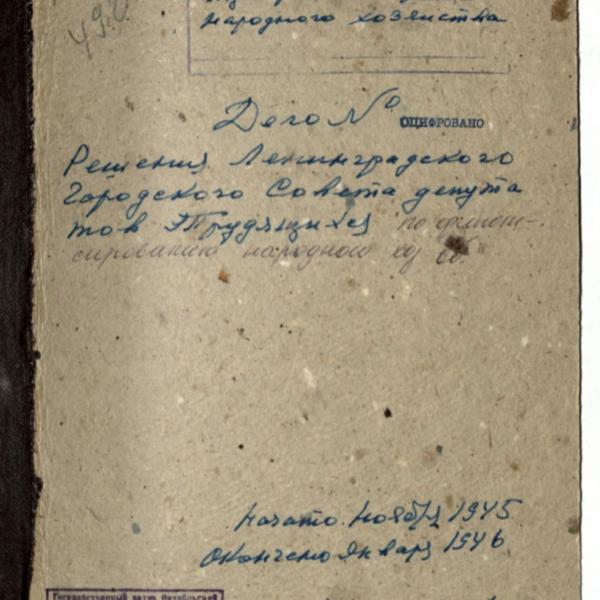 народного хозяйства
Дело №
ОЦИФРОВАНО
Решения Ленинградского
Городского Совета депута
тов Трудящихся по финан-
сированию народного хоз ва
Начато Ноября 1945
Окончено Января 1946
Государственный архив Октябрьской